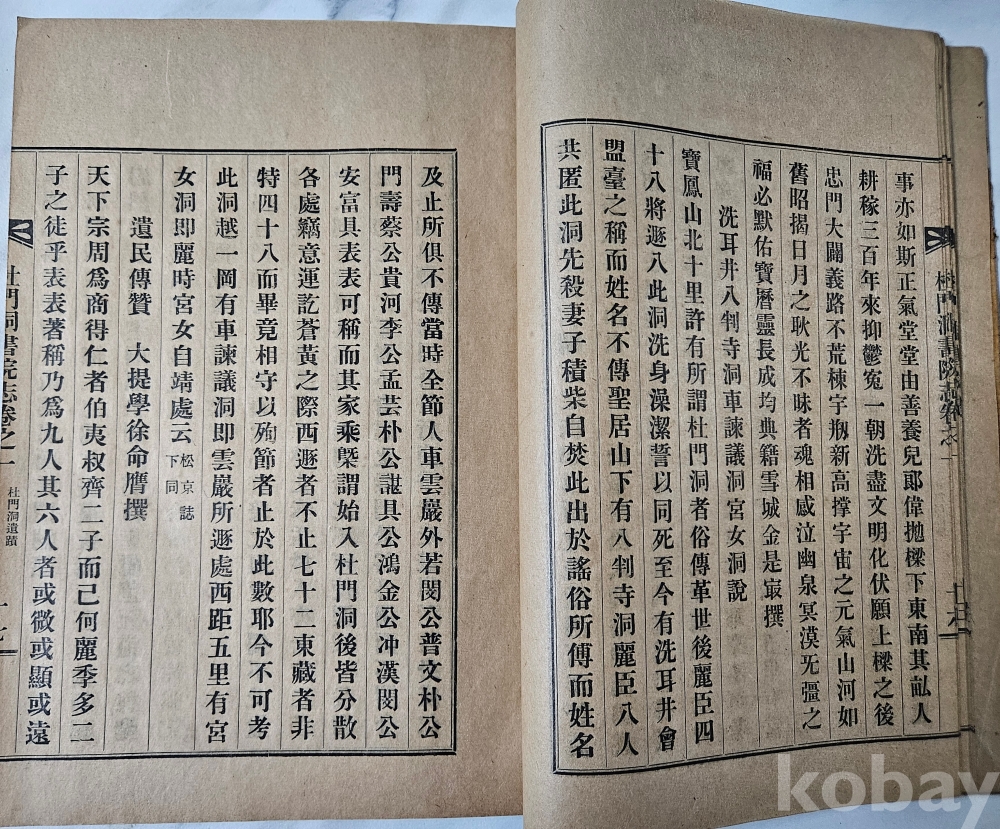 事亦如斯正氣堂堂由善養兒郞偉抛樑下東南其畝人
耕稼三百年來抑鬱寃一朝洗盡文明化伏願上樑之後
忠門大闢義路不荒棟宇剏新高撑宇宙之元氣山河如
舊昭揭日月之耿光不昧者魂相感泣幽泉冥漠无彊之
福必默佑寶曆靈長成均典籍雪城金是㝡撰
洗耳井八判寺洞車諫議洞宮女洞說
寶鳳山北十里許有所謂杜門洞者俗傳革世後麗臣四
十八將遯入此洞洗身澡潔誓以同死至今有洗耳井會
盟臺之稱而姓名不傳聖居山下有八判寺洞麗臣八人
共匿此洞先殺妻子積柴自焚此出於謠俗所傅而姓名
杜門洞書院志卷之一
及止所俱不傳當時全節人車雲巖外若閔公普文朴公
門壽蔡公貴河李公孟芸朴公諶具公鴻金公冲漢閔公
安富具表表可稱而其家乘槩謂始入杜門洞後皆分散
各處竊意運訖蒼黃之際西遯者不止七十二東藏者非
特四十八而畢竟相守以殉節者止於此數耶今不可考
此洞越一岡有車諫議洞即雲巖所遯處西距五里有宮
女洞即麗時宮女自靖處云 松京誌下同
遺民傳贊 大提學徐命膺撰
天下宗周爲商得仁者伯夷叔齊二子而己何麗季多二
子之徒乎表表著稱乃爲九人其六人者或微或顯或遠
杜門洞書院志卷之一 杜門洞遺蹟 十七
kobay